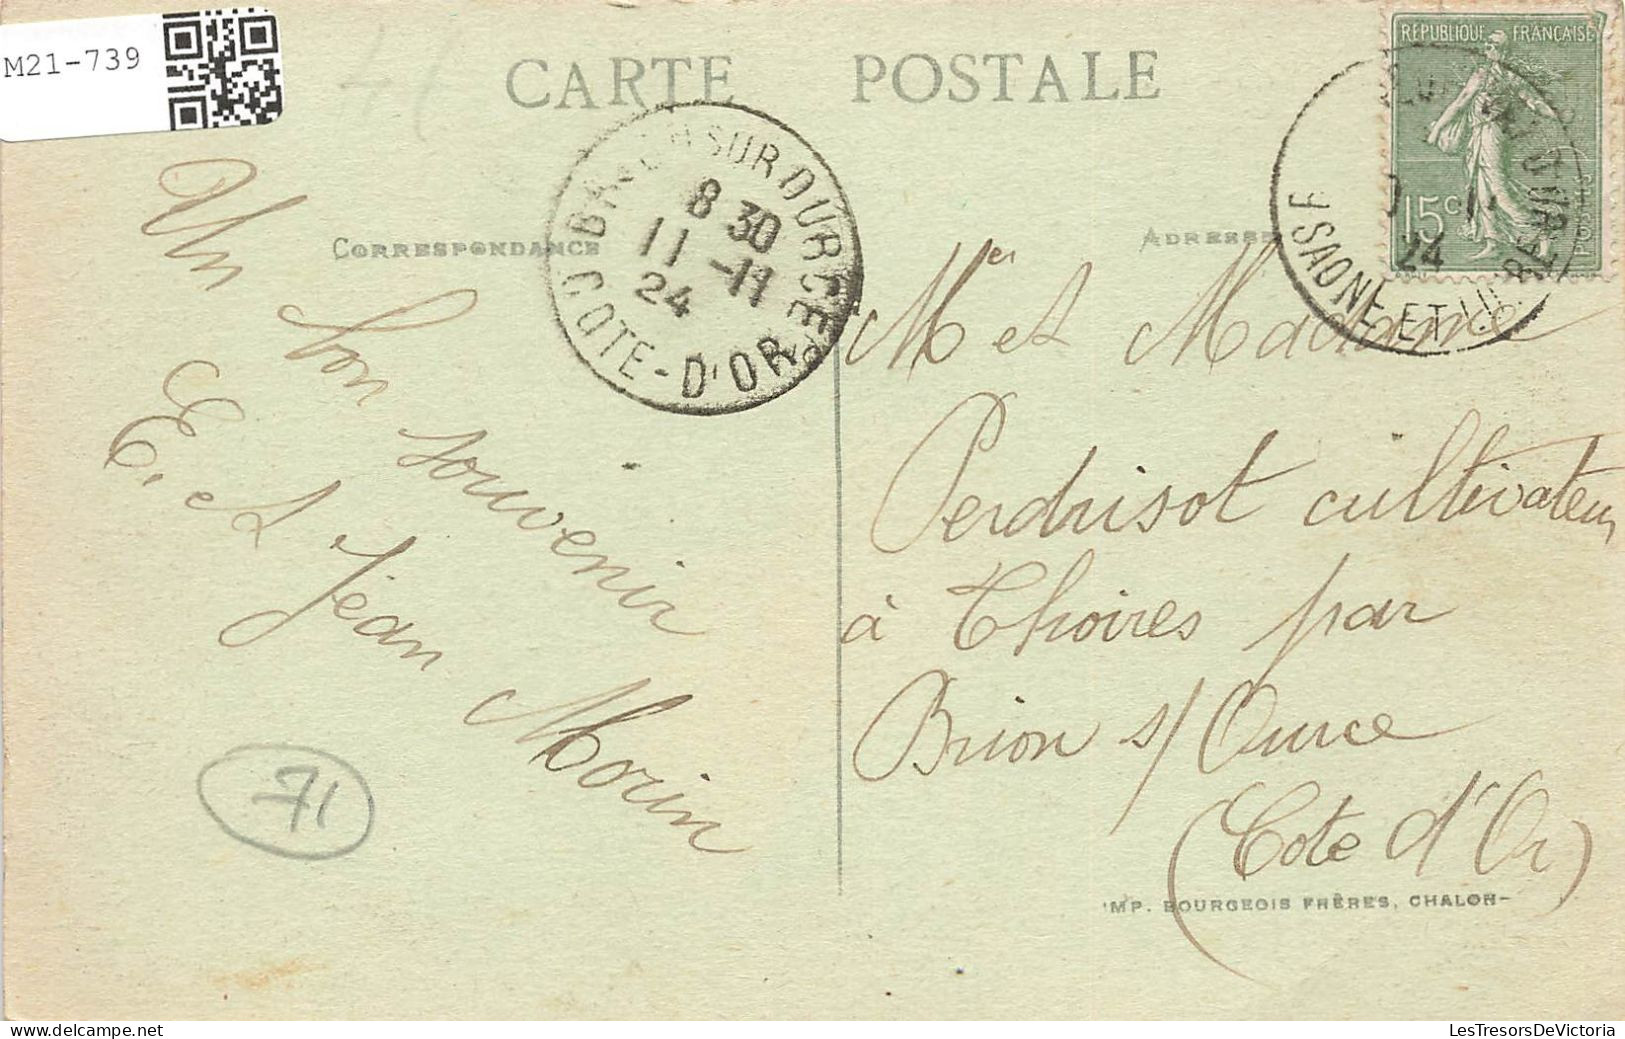 M21-739
CARTE POSTALE
RÉPUBLIQUE FRANÇAISE
15c
POSTES
SUR OURCE
8 30
11 -11
24
COTE-D'OR
24
SAONE-ET-
CORRESPONDANCE
ADRESSE
Un bon souvenir
E. et Jean Morin
71
Mer et Madame
Perdrisot cultivateur
à Thoires par
Brion s/ Ource
(Cote d'Or)
IMP. BOURGEOIS FRÈRES, CHALON-
LesTresorsDeVictoria
delcampe.net